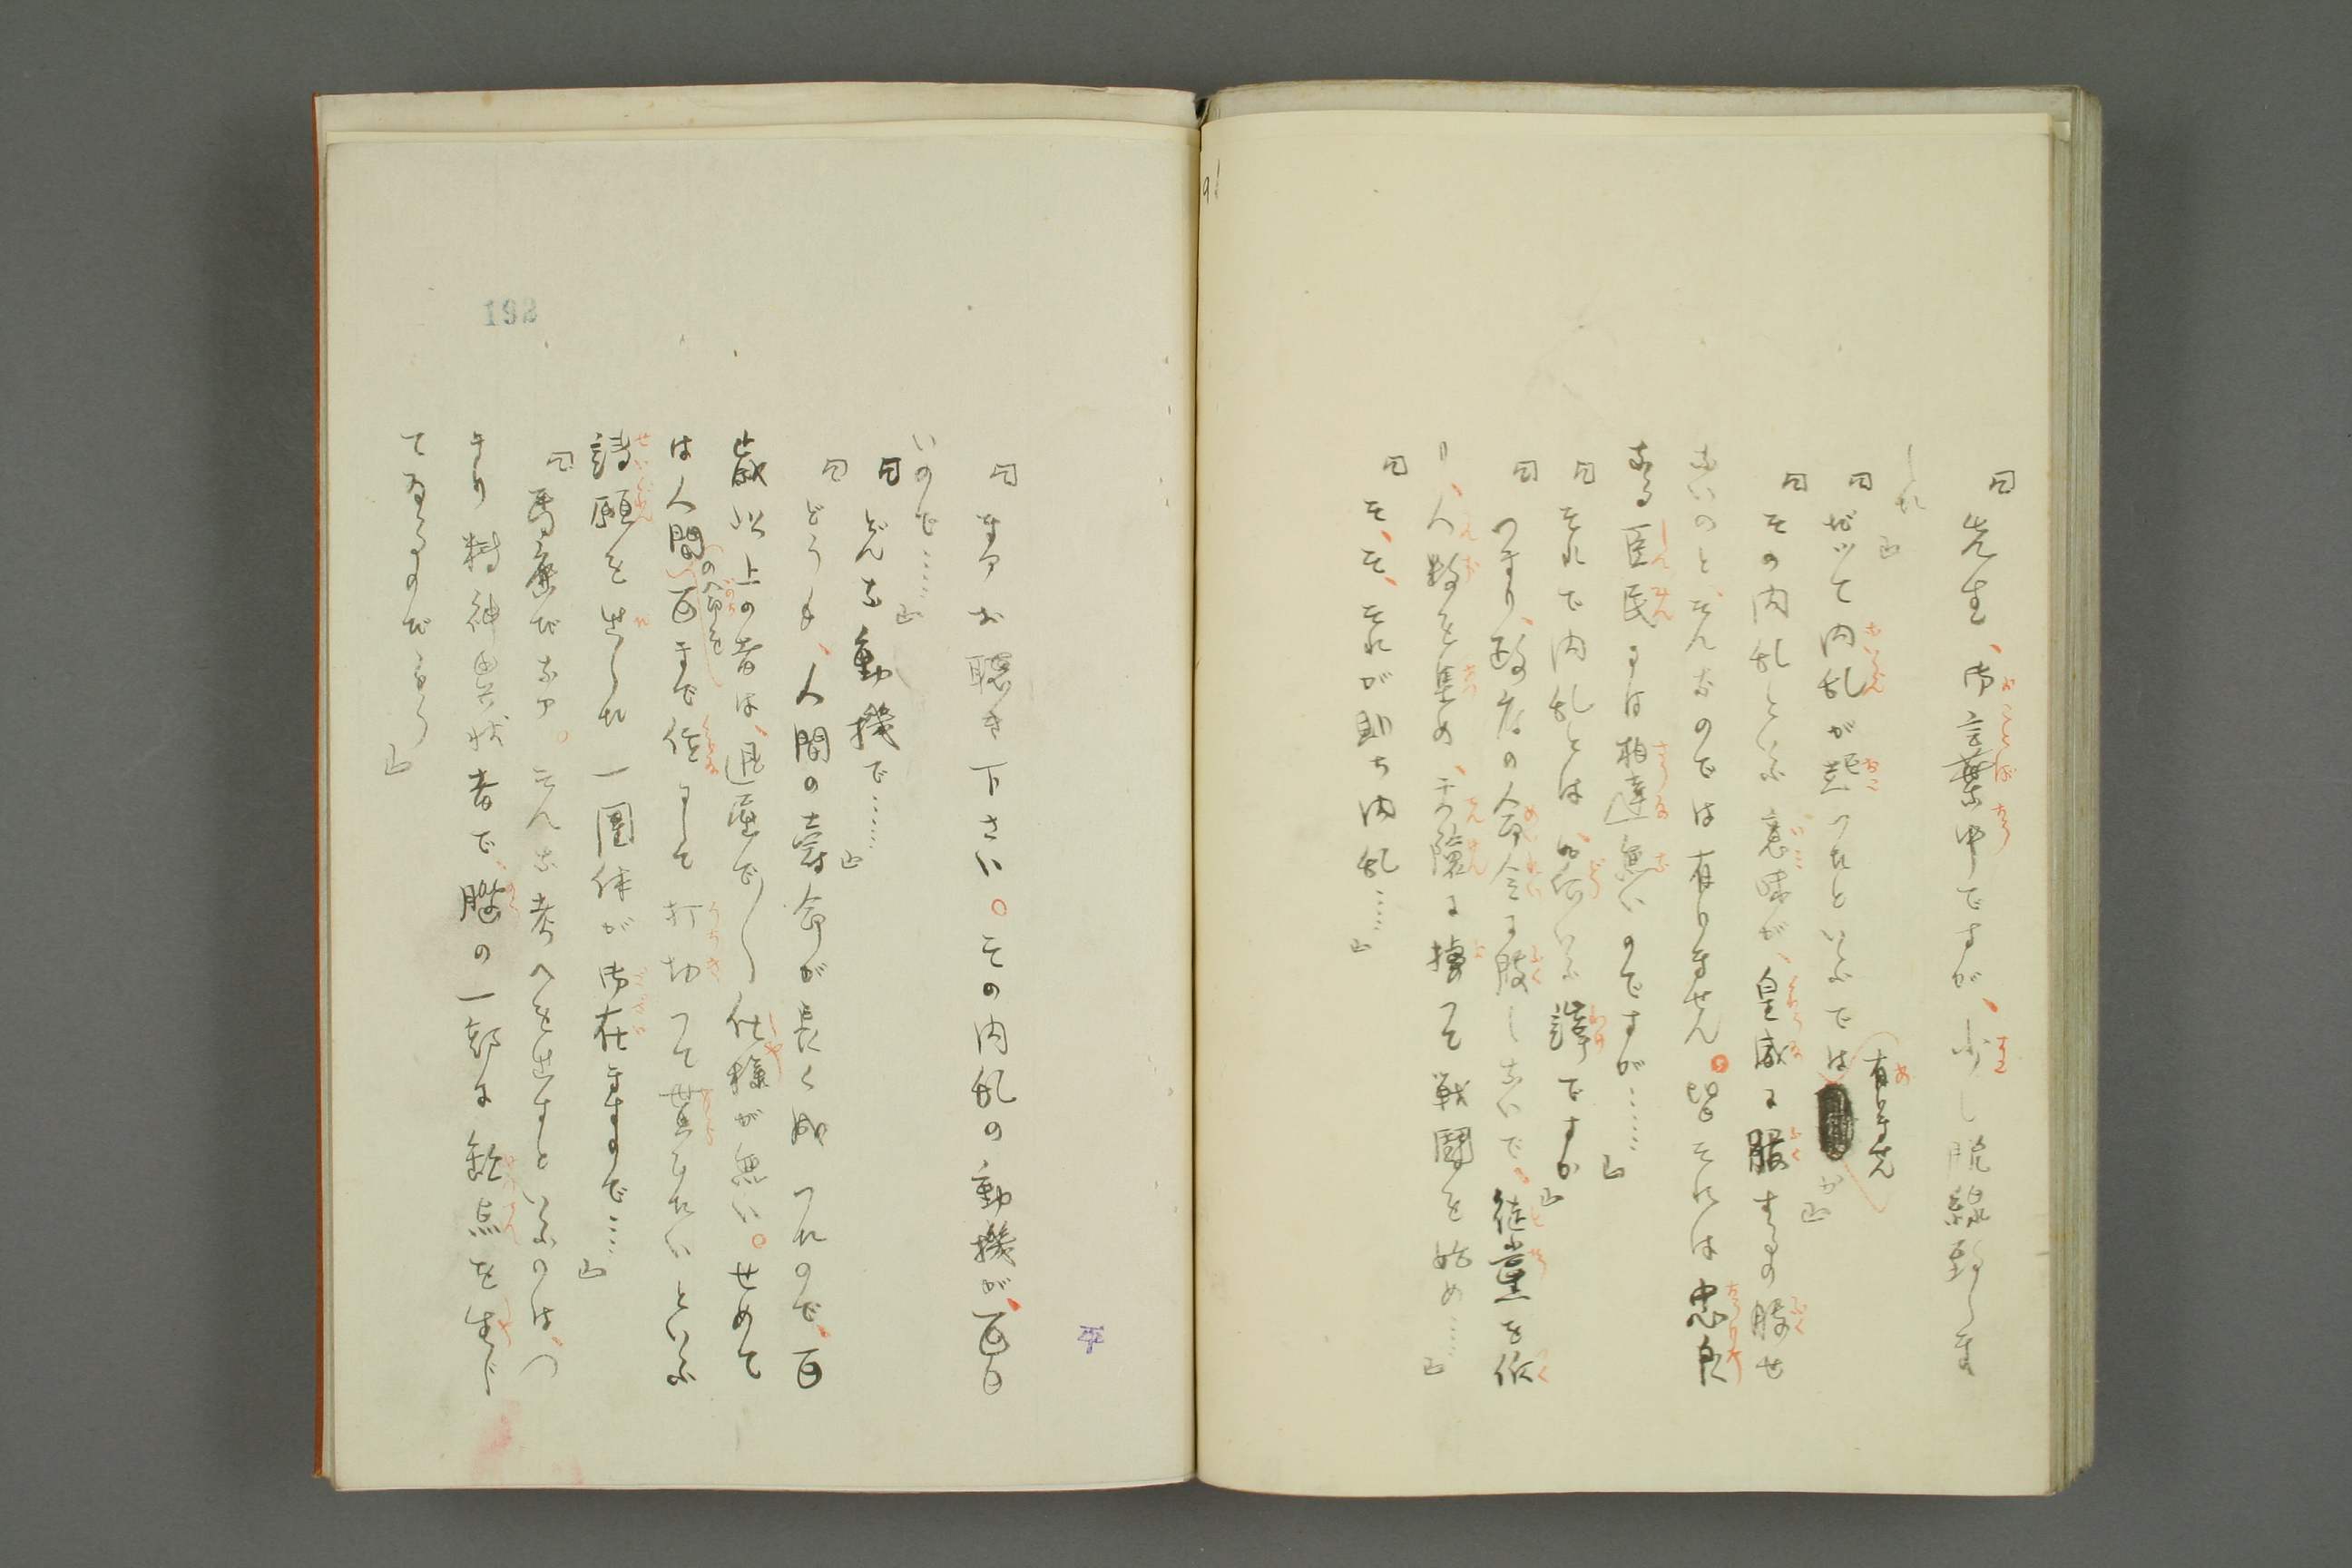 91
「先生、御言葉中ですが、少し脱線致しま
した」
「だツて内乱が起つたといふでは有りませんか」
「その内乱といふ意味が、皇威に服するの服せ
ないのと、そんなのでは有りません。皆それは忠良
なる臣民には相違無いのですが……」
「それで内乱とは如何いふ譯ですか」
「つまり、政府の命令に服しないで、徒黨を作
り、人数を集め、天險に據つて戦闘を始め……」
「そ、そ、それが即ち内乱……」
「まアお聴き下さい。その内乱の動機が、面白
いので……」
「どんな動機で……」
「どうも、人間の壽命が長く成つたので、百
歳以上の者は、退屈で〱仕様が無い。せめて
は人間の命を百まで位にして打切つて貰ひたいといふ
請願を出した一團体が御在ますので……」
「馬鹿だなア。そんな考へを出すといふのは、つ
まり精神異状者で、脳の一部に缺点を生じ
てゐるのだらう」
192